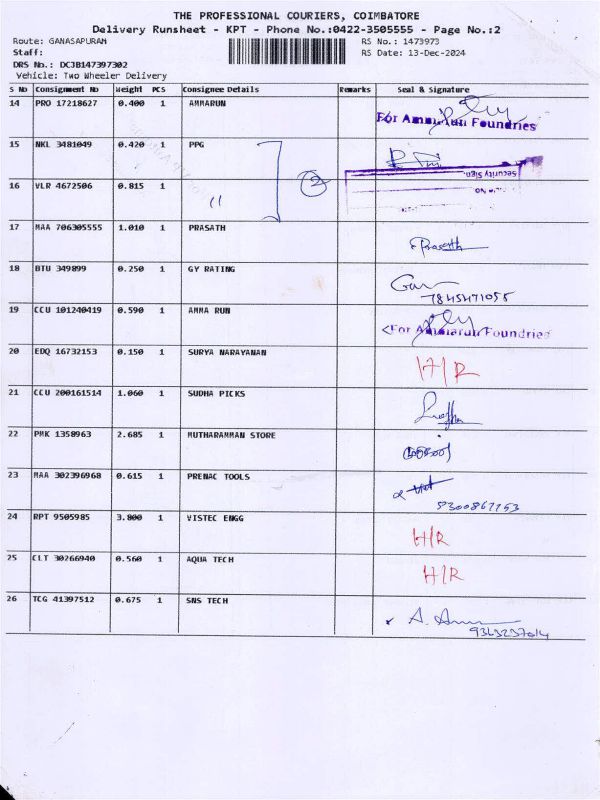 THE PROFESSIONAL COURIERS, COIMBATORE
Delivery Runsheet - KPT - Phone No.:0422-3505555 - Page No.:2
Route: GANASAPURAM RS No.: 1473973
Staff: RS Date: 13-Dec-2024
DRS No.: DCJB147397302
Vehicle: Two Wheeler Delivery
S No Consignment No Weight PCS Consignee Details Remarks Seal & Signature
14 PRO 17218627 0.400 1 AMMARUN
For Ammarun Foundries
15 NKL 3481049 0.420 1 PPG
2
Security Sign.
16 VLR 4672506 0.815 1
"
17 MAA 706305555 1.010 1 PRASATH
Prasath
18 BTU 349899 0.250 1 GY RATING
7845471055
19 CCU 101240419 0.590 1 AMMA RUN
For Ammarun Foundries
20 EDQ 16732153 0.150 1 SURYA NARAYANAN
H/R
21 CCU 200161514 1.060 1 SUDHA PICKS
22 PMK 1358963 2.685 1 MUTHARAMMAN STORE
23 MAA 302396968 0.615 1 PRENAC TOOLS
24 RPT 9505985 3.800 1 VISTEC ENGG
H/R
25 CLT 30266940 0.560 1 AQUA TECH
H/R
26 TCG 41397512 0.675 1 SNS TECH